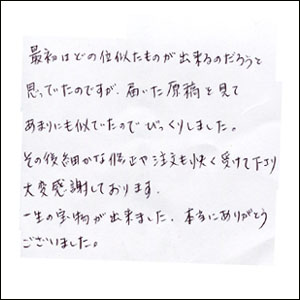 最初はどの位似たものが出来るのだろうと
思っていたのですが、届いた原稿を見て
あまりにも似ていたのでびっくりしました。
その後細かな修正や注文も快く受けて下さり
大変感謝しております。
一生の宝物が出来ました、本当にありがとう
ございました。